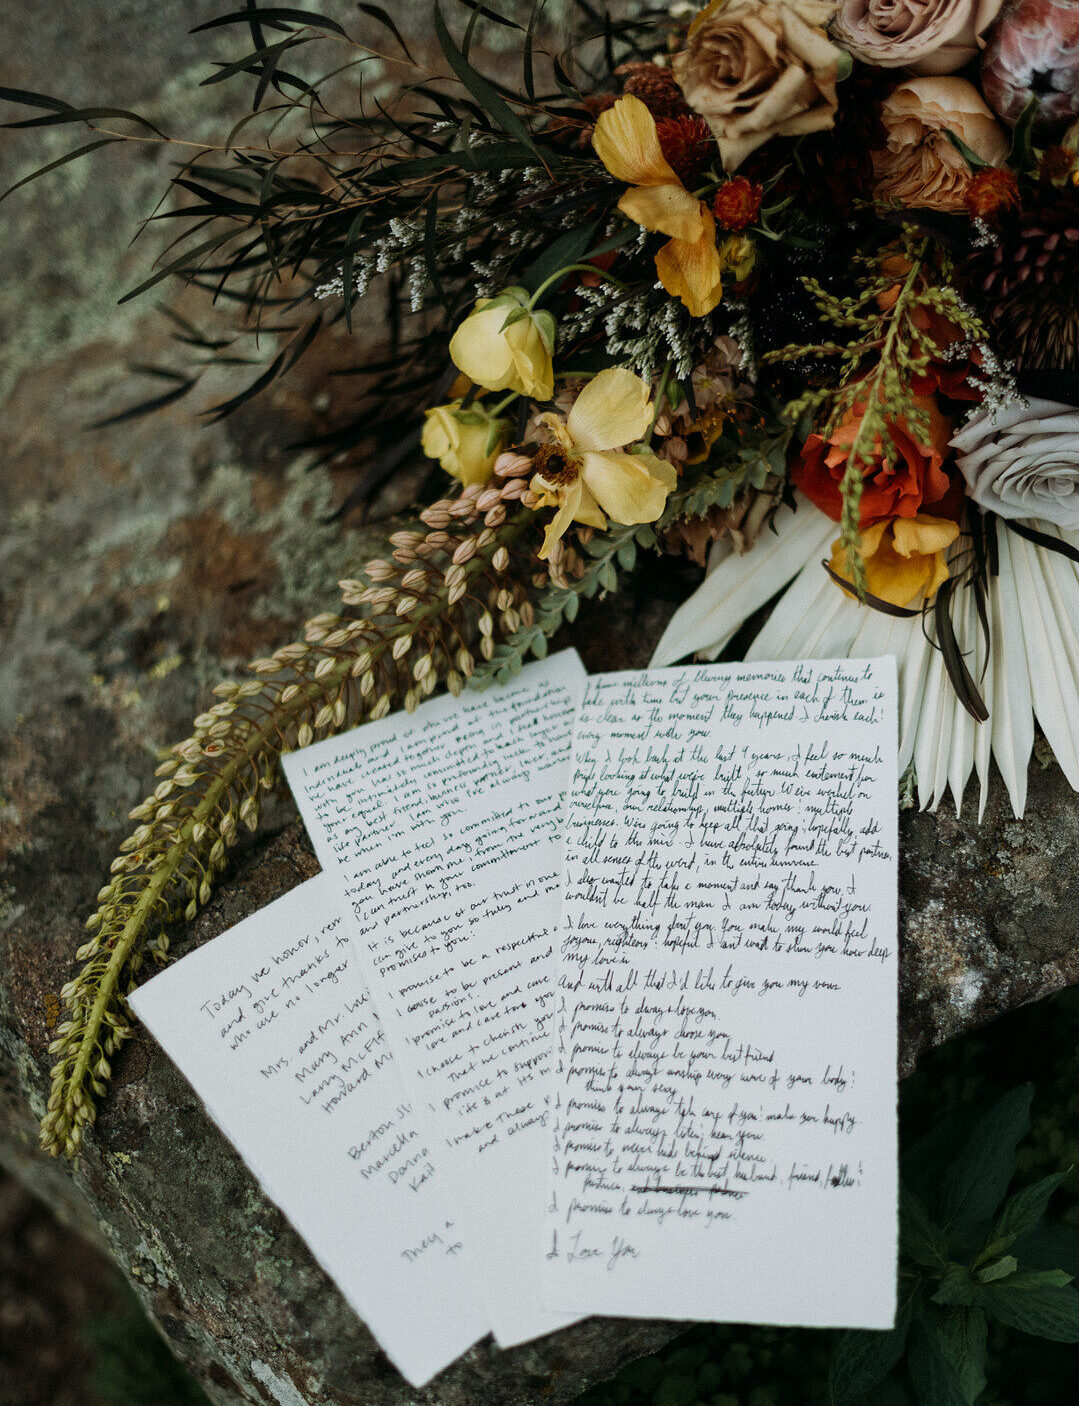 Today we honor, rem
and give thanks to
who are no longer
Mrs. and Mr.
Mary Ann
Larry McEff
Howard M
Berton Sl
Marcella
Donna
Kail
They a
to
I am deeply proud of who we have become as
individuals and I am proud of the foundation
we have created together. Being in partnership
with you has so much depth and I feel honor
to be intimately committed to each layer
your equal. I am so profoundly lucky to have
as my best friend, business partner, lover, and
life partner. I am who I've always wan
be when I'm with you.
I am able to feel so committed to our p
today and every day going forward
you have shown me, from the very b
I can trust in your commitment to
and partnership, too.
It is because of our trust in one
can give to you so fully and me
promises to you:
I promise to be a respectful
I choose to be present and
passions.
I promise to love and care
love and care for you
I choose to cherish you
that we continue
I promise to suppor
life & at its m
I make these v
and always
I have millions of blurry memories that continue to
fade with time but your presence in each of them is
as clear as the moment they happened. I cherish each &
every moment with you.
When I look back at the last 9 years, I feel so much
pride looking at what we've built & so much excitement for
what we're going to build in the future. We've worked on
ourselves, our relationship, multiple homes & multiple
businesses. We're going to keep all that going & hopefully, add
a child to this mix. I have absolutely found the best partner,
in all senses of the word, in the entire universe.
I also wanted to take a moment and say thank you. I
wouldn't be half the man I am today without you.
I love everything about you. You make my world feel
joyous, righteous & hopeful. I can't wait to show you how deep
my love is
And with all that I'd like to give you my vows
I promise to always love you.
I promise to always choose you.
I promise to always be your best friend
I promise to always worship every curve of your body &
think your sexy.
I promise to always take care of you & make you happy.
I promise to always listen & hear you.
I promise to never hide behind silence.
I promise to always be the best husband, friend, father &
partner, and business partner
I promise to always love you.
I Love You